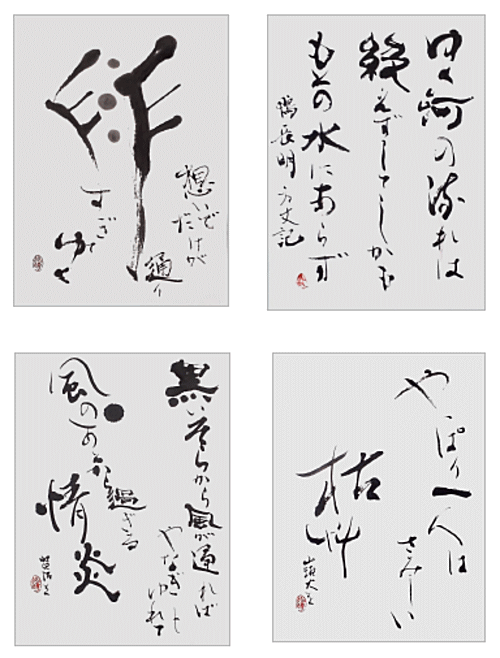 想いで
だけが
通り
すぎ
ゆく
ゆく河の流れは
絶えずしてしかも
もとの水にあらず
鴨長明 方丈記
黒いそらから風が通れば
やなぎ
ゆれて
風の
過ぎる
情炎
やっぱり一人は
さみしい
枯草
山頭火